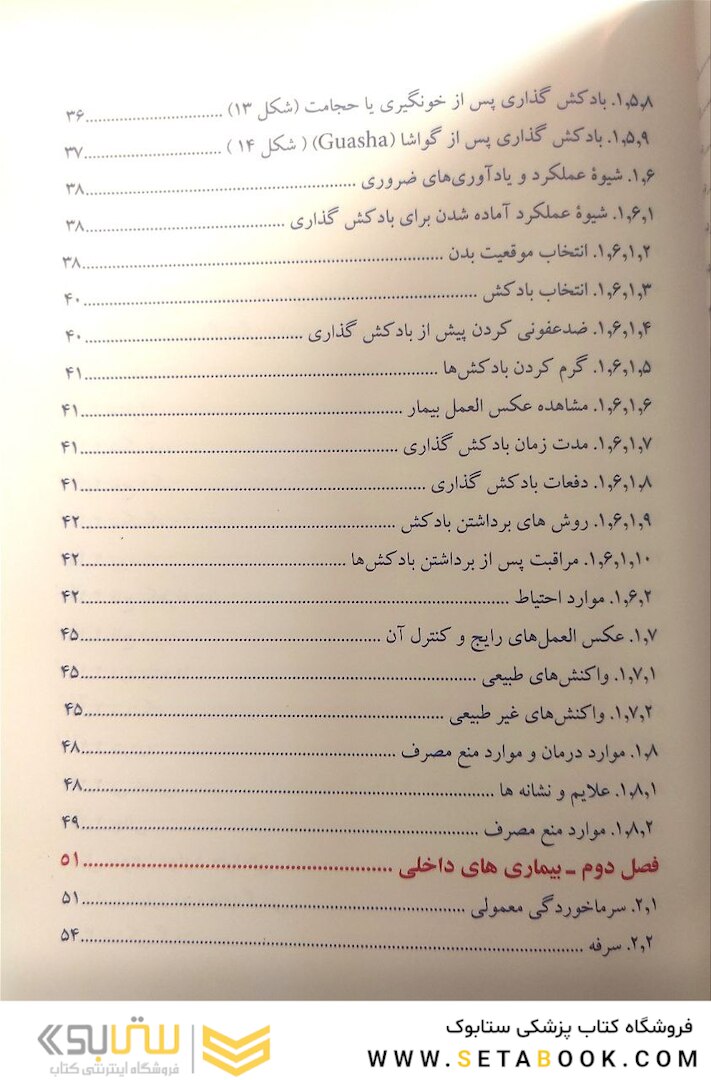 ۱٫۵٫۸. بادکش گذاری پس از خونگیری یا حجامت (شکل ۱۳) ..............................۳۶
۱٫۵٫۹. بادکش گذاری پس از گواشا (Guasha) ( شکل ۱۴ ) ..............................۳۷
۱٫۶. شیوۀ عملکرد و یادآوری‌های ضروری ..............................۳۸
۱٫۶٫۱. شیوۀ عملکرد آماده شدن برای بادکش گذاری ..............................۳۸
۱٫۶٫۱٫۲. انتخاب موقعیت بدن ..............................۳۸
۱٫۶٫۱٫۳. انتخاب بادکش ..............................۴۰
۱٫۶٫۱٫۴. ضدعفونی کردن پیش از بادکش گذاری ..............................۴۰
۱٫۶٫۱٫۵. گرم کردن بادکش‌ها ..............................۴۱
۱٫۶٫۱٫۶. مشاهده عکس العمل بیمار ..............................۴۱
۱٫۶٫۱٫۷. مدت زمان بادکش گذاری ..............................۴۱
۱٫۶٫۱٫۸. دفعات بادکش گذاری ..............................۴۱
۱٫۶٫۱٫۹. روش های برداشتن بادکش ..............................۴۲
۱٫۶٫۱٫۱۰. مراقبت پس از برداشتن بادکش‌ها ..............................۴۲
۱٫۶٫۲. موارد احتیاط ..............................۴۲
۱٫۷. عکس العمل‌های رایج و کنترل آن ..............................۴۵
۱٫۷٫۱. واکنش‌های طبیعی ..............................۴۵
۱٫۷٫۲. واکنش‌های غیر طبیعی ..............................۴۵
۱٫۸. موارد درمان و موارد منع مصرف ..............................۴۸
۱٫۸٫۱. علایم و نشانه ها ..............................۴۸
۱٫۸٫۲. موارد منع مصرف ..............................۴۹
فصل دوم ـ بیماری های داخلی ..............................۵۱
۲٫۱. سرماخوردگی معمولی ..............................۵۱
۲٫۲. سرفه ..............................۵۴
فروشگاه کتاب پزشکی ستابوک
WWW.SETABOOK.COM
ستابوک
فروشگاه اینترنتی کتاب